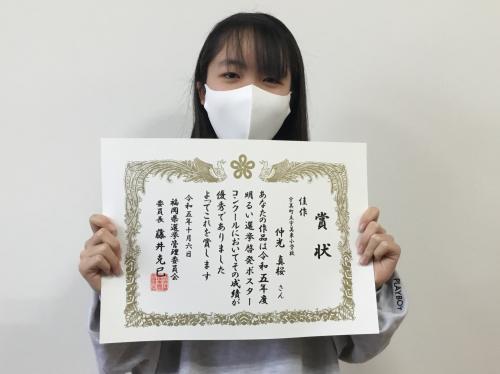 賞状
佳作
宇美町立宇美東小学校
仲光 真桜 さん
あなたの作品は令和五年度
明るい選挙啓発ポスター
コンクールにおいてその成績が
優秀でありました
よってこれを賞します
令和五年十月六日
福岡県選挙管理委員会
委員長 藤井克已
PLAYBOY